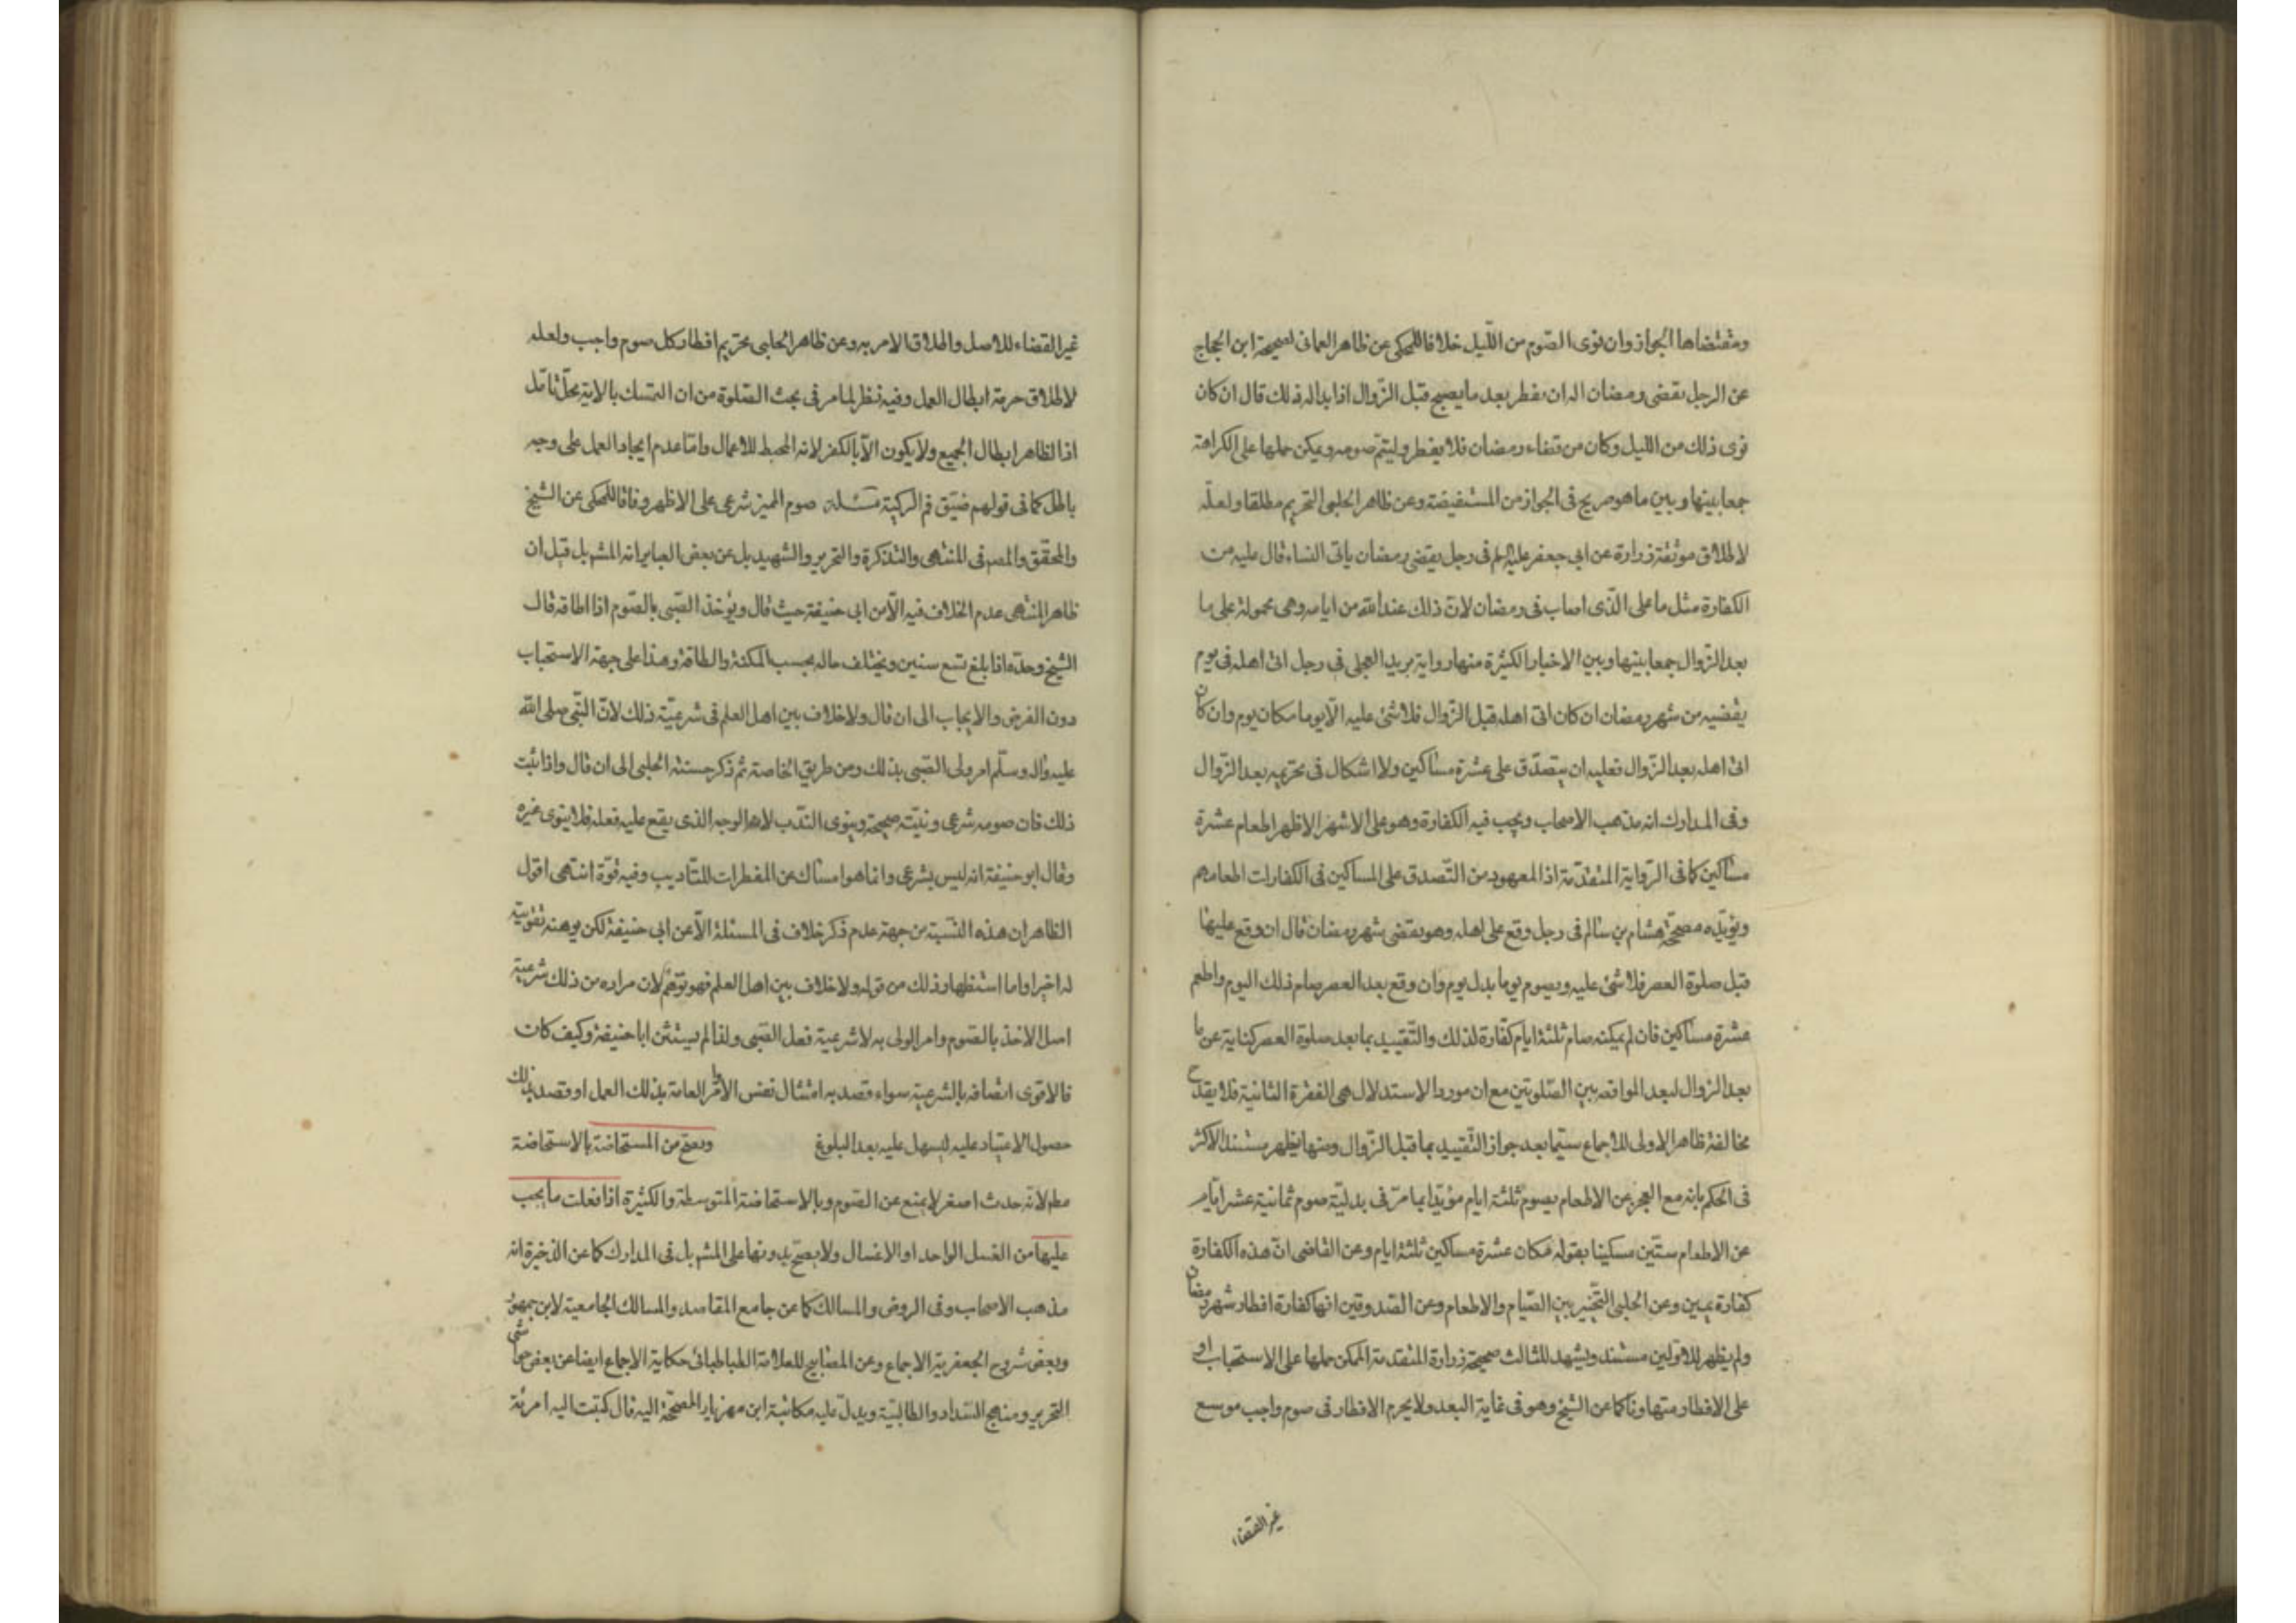 ومقتضاها الجواز وان نوى الصّوم من اللّيل خلافا للمحكى عن ظاهر العمانى لصحيحة ابن الحجاج
عن الرجل يقضى رمضان اله ان يفطر بعد ما يصبح قبل الزّوال اذا بدا له فذلك قال ان كان
نوى ذلك من الليل وكان من قضاء رمضان فلا يفطر وليتمّ صومه ويمكن حملها على الكراهة
جمعا بينها وبين ما هو صريح فى الجواز من المستفيضة وعن ظاهر الحلبى التحريم مطلقا ولعلّه
لاطلاق موثقة زرارة عن ابى جعفر عليه لم فى رجل يقضى رمضان ياتى النساء قال عليه من
الكفارة مثل ما على الّذى اصاب فى رمضان لانّ ذلك عند الله من ايامه وهى محمولة على ما
بعد الزّوال جمعا بينها وبين الاخبار الكثيرة منها رواية بريد العجلى فى رجل اتى اهله فى يوم
يقضيه من شهر رمضان ان كان اتى اهله قبل الزّوال فلا شئ عليه الّا يوما مكان يوم وان كان
اتى اهله بعد الزّوال فعليه ان يتصدّق على عشرة مساكين ولا اشكال فى تحريمه بعد الزّوال
وفى المدارك انه مذهب الاصحاب ويجب فيه الكفارة وهو على الاشهر الاظهر اطعام عشرة
مساكين كما فى الرّواية المتقدّمة اذ المعهود من التّصدق على المساكين فى الكفارات اطعامهم
ويؤيّده مصحّحة هشام بن سالم فى رجل وقع على اهله وهو يقضى شهر رمضان قال ان وقع عليها
قبل صلوة العصر فلا شئ عليه ويصوم يوما بدل يوم وان وقع بعد العصر صام ذلك اليوم واطعم
عشرة مساكين فان لم يمكنه صام ثلثة ايام كفّارة لذلك والتّقييد بما بعد صلوة العصر كناية عن ما
بعد الزوال لبعد المواقعه بين الصّلوتين مع ان مورد الاستدلال هى الفقرة الثانية فلا يقدح
مخالفة ظاهر الاولى للاجماع سيّما بعد جواز التّقييد بما قبل الزّوال ومنها يظهر مستند الاكثر
فى الحكم بانه مع العجز عن الاطعام يصوم ثلثة ايام مؤيّدا بما مرّ فى بدليّة صوم ثمانية عشر ايّام
عن الاطعام ستّين مسكينا بقوله مكان عشرة مساكين ثلثة ايام وعن القاضى انّ هذه الكفارة
كفارة يمين وعن الحلبى التّخيير بين الصّيام والاطعام وعن الصّدوقين انها كفارة افطار شهر رمضان
ولم يظهر للاوّلين مستند ويشهد للثالث صحيحة زرارة المتقدمة الممكن حملها على الاستحباب او
على الافطار متهاونا كما عن الشيخ وهو فى غاية البعد ولا يحرم الافطار فى صوم واجب موسع
غير القضاء
غير القضاء للاصل واطلاق الامر به وعن ظاهر الحلبى تحريم افطار كل صوم واجب ولعله
لاطلاق حرمة ابطال العمل وفيه نظر لما مر فى بحث الصّلوة من ان التمسك بالاية محلّ تامّل
اذ الظاهر ابطال الجميع ولا يكون الّا بالكفر لانه المحبط للاعمال وامّا عدم ايجاد العمل على وجه
باطل كما فى قولهم ضيّق فم الركيّة مسئلة صوم المميز شرعى على الاظهر وفاقا للمحكى عن الشيخ
والمحقّق والمص فى المنتهى والتذكرة والتحرير والشهيد بل عن بعض العباير انه المشهر بل قيل ان
ظاهر المنتهى عدم الخلاف فيه الّا من ابى حنيفة حيث قال ويؤخذ الصّبى بالصّوم اذا اطاقه قال
الشيخ وحدّه اذا بلغ تسع سنين ويختلف حاله بحسب المكنة والطاقة وهذا على جهة الاستحباب
دون الفرض والايجاب الى ان قال ولا خلاف بين اهل العلم فى شرعيّة ذلك لانّ النّبى صلى الله
عليه وآله وسلّم امر ولى الصّبى بذلك ومن طريق الخاصة ثم ذكر حسنة الحلبى الى ان قال واذا ثبت
ذلك فان صومه شرعى ونيّته صحيحة وينوى النّدب لانه الوجه الذى يقع عليه فعله فلا ينوى غيره
وقال ابو حنيفة انه ليس بشرعى وانما هو امساك عن المفطرات للتّاديب وفيه قوّة انتهى اقول
الظاهر ان هذه النّسبة من جهة عدم ذكر خلاف فى المسئلة الّا عن ابى حنيفة لكن يوهنه تقويته
له اخيرا واما استظهار ذلك من قوله ولا خلاف بين اهل العلم فهو توّهم لان مراده من ذلك شرعية
اصل الاخذ بالصّوم وامر الولى به لا شرعية فعل الصّبى ولذا لم يستثن ابا حنيفة وكيف كان
فالاقوى اتصافه بالشرعية سواء قصد به امتثال نفس الاوامر العامة بذلك العمل او قصد بذلك
حصول الاعتياد عليه ليسهل عليه بعد البلوغ ويصحّ من المستحاضة بالاستحاضة
مطم لانّه حدث اصغر لا يمنع عن الصّوم وبالاستحاضة المتوسطة والكثيرة اذا فعلت ما يجب
عليها من الغسل الواحد او الاغسال ولا يصحّ بدونها على المشهر بل فى المدارك كما عن الذخيرة انه
مذهب الاصحاب وفى الروض والمسالك كما عن جامع المقاصد والمسالك الجامعية لابن جمهور
وبعض شروح الجعفرية الاجماع وعن المصابيح للعلامة الطباطبائى حكاية الاجماع ايضا عن بعض حواشى
التحرير ومنهج السّداد والطالبيّة ويدلّ عليه مكاتبة ابن مهزيار المصحّحة اليه قال كتبت اليه امرئة